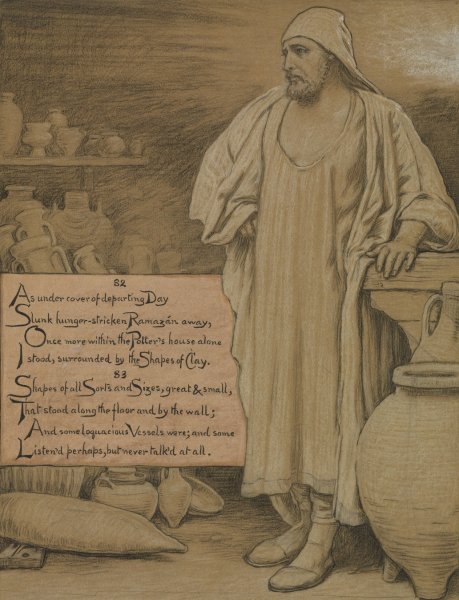 82
As under cover of departing Day
Slunk hunger-stricken Ramazán away,
Once more within the Potter's house alone
I stood, surrounded by the Shapes of Clay.
83
Shapes of all Sorts and Sizes, great & small,
That stood along the floor and by the wall;
And some loquacious Vessels were; and some
Listen'd perhaps, but never talk'd at all.